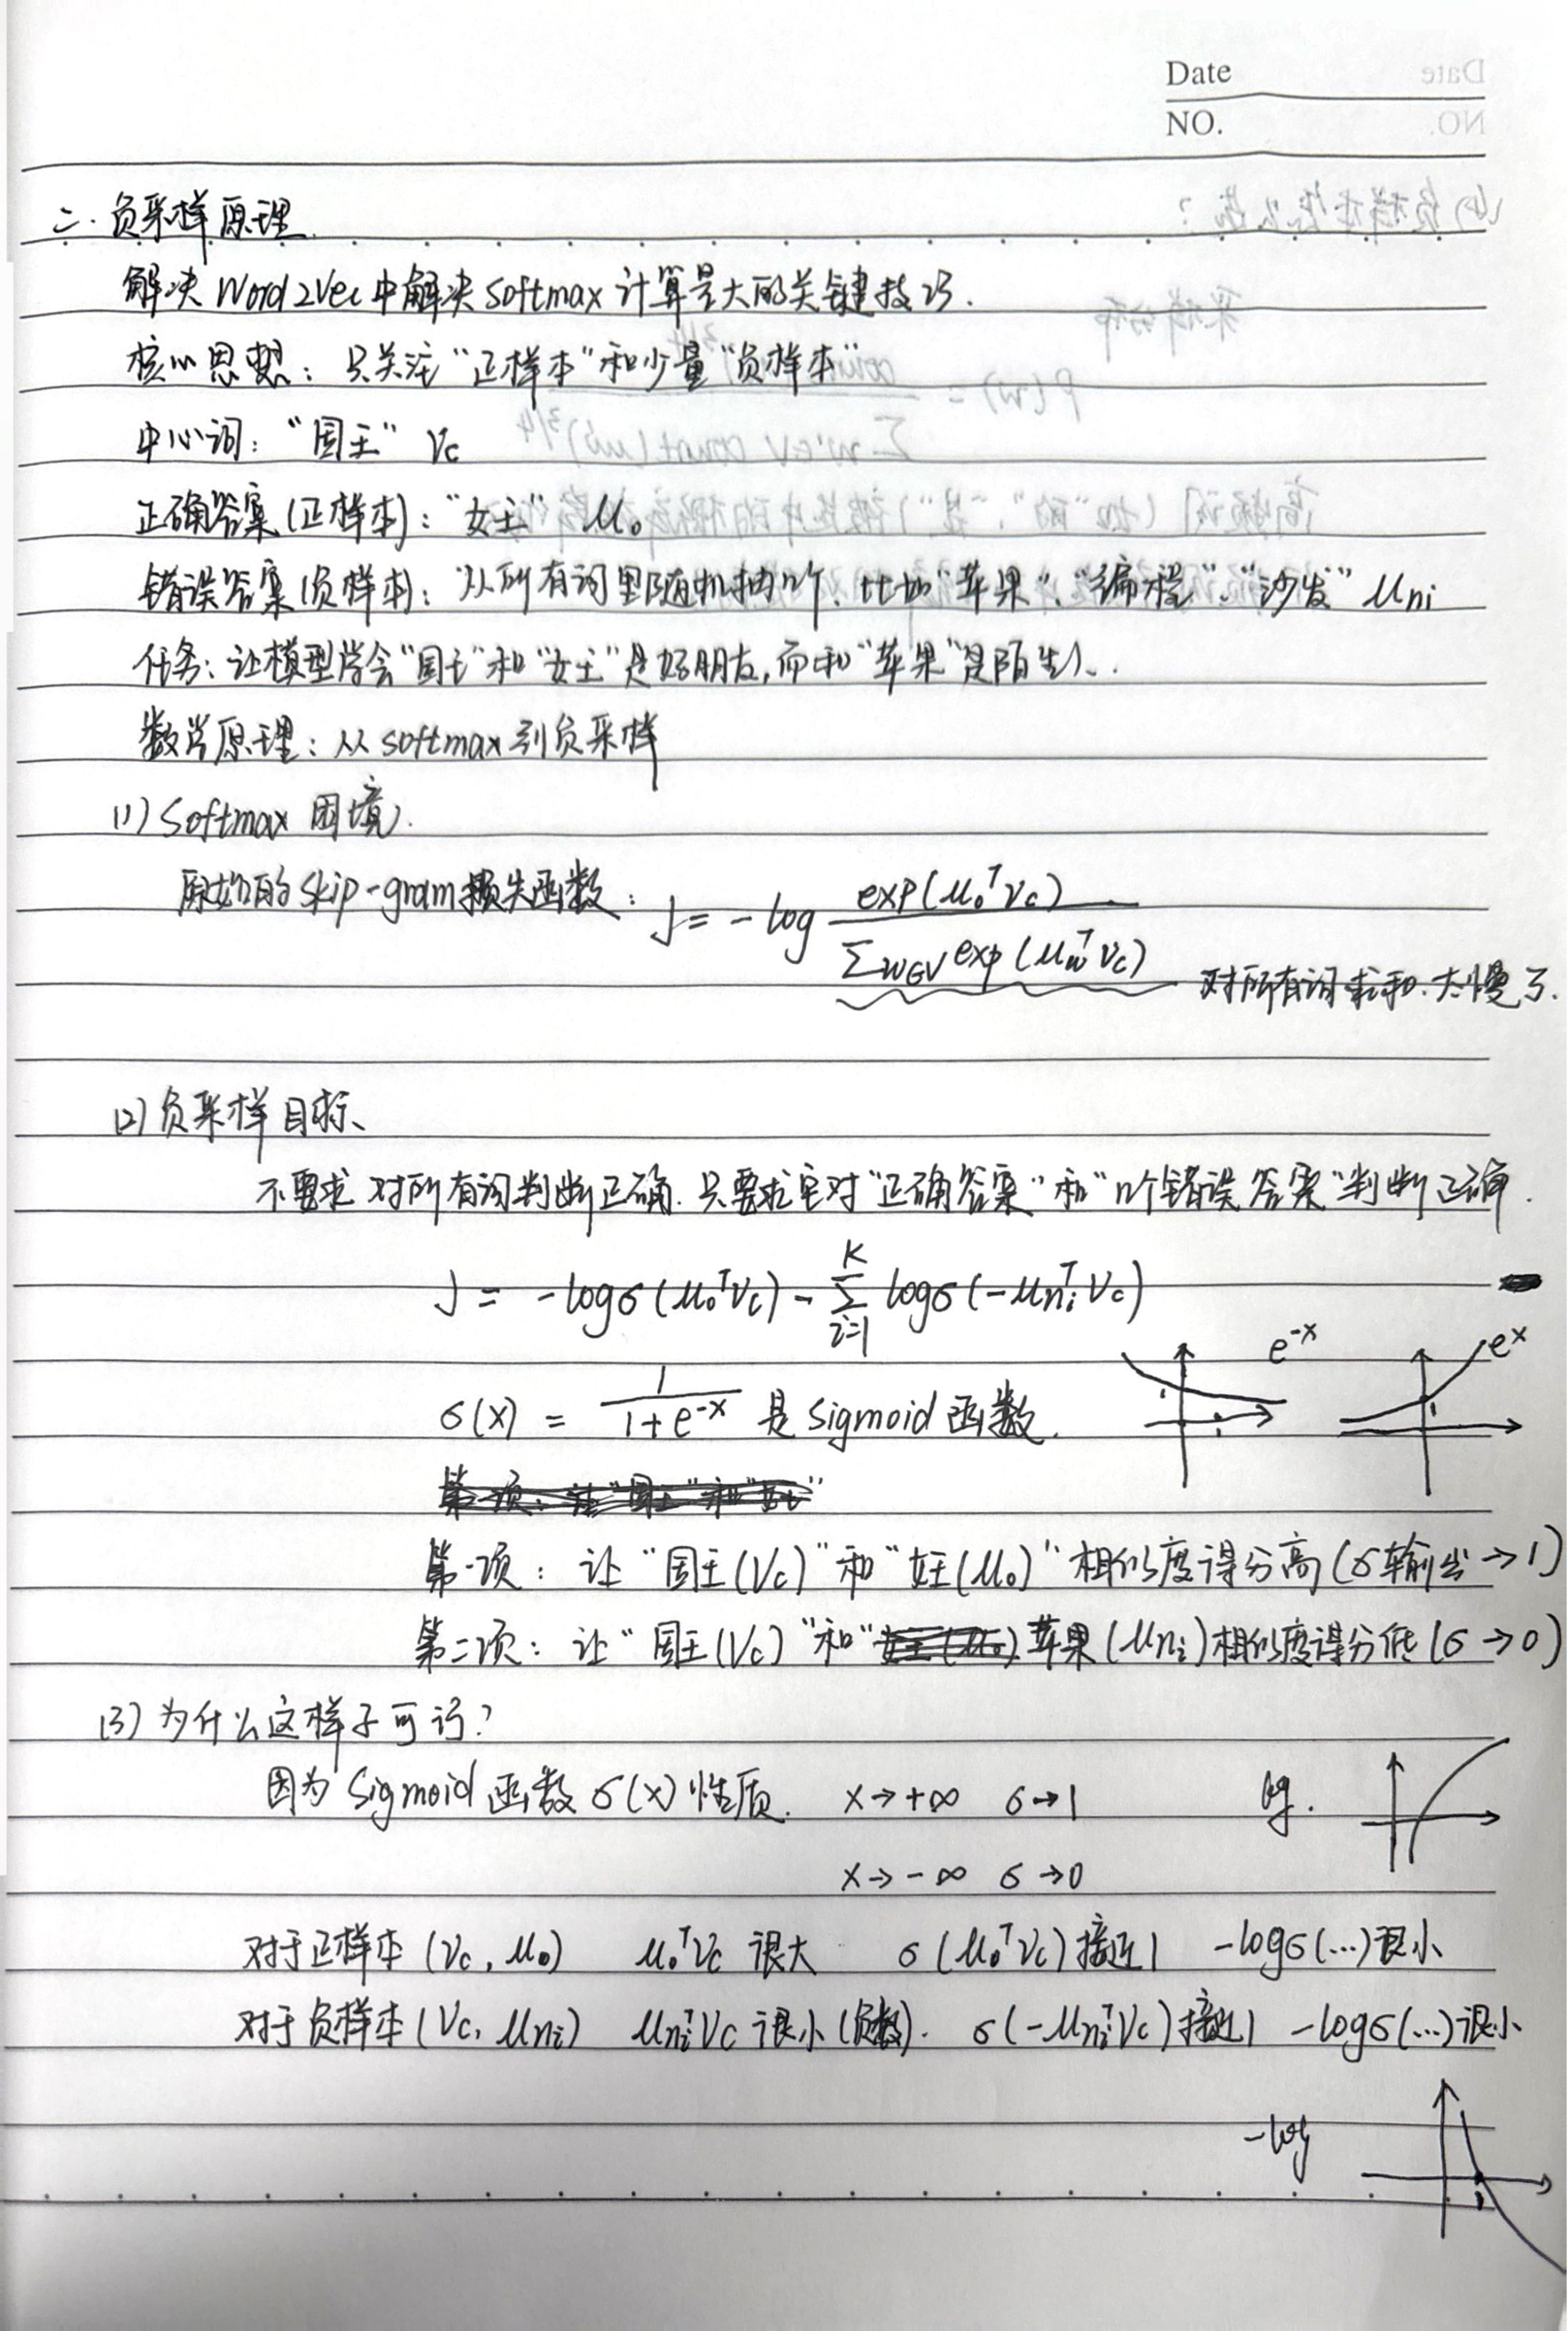 Date
NO.
二.负采样原理.
解决Word2Vec中解决softmax计算量大的关键技巧.
核心思想：只关注“正样本”和少量“负样本”
中心词：“国王” Vc
正确答案(正样本)：“女王” μ₀
错误答案(负样本)：从所有词里随机抽n个.比如“苹果”、“编程”、“沙发” μni
任务：让模型学会“国王”和“女王”是好朋友,而和“苹果”是陌生人.
数学原理：从softmax到负采样
(1) Softmax困境.
原始的Skip-gram损失函数： J = -log exp(μ₀ᵀVc) / Σw∈V exp(μwᵀVc) 对所有词求和.太慢了.
(2) 负采样目标、
不要求对所有词判断正确.只要求它对“正确答案”和“n个错误答案”判断正确.
J = -logσ(μ₀ᵀVc) - Σ(i=1→K) logσ(-μniᵀVc)
e⁻ˣ eˣ
σ(x) = 1/(1+e⁻ˣ) 是Sigmoid函数.
第一项：让“国王(Vc)”和“女王(μ₀)”相似度得分高(σ输出→1)
第二项：让“国王(Vc)”和“苹果(μni)相似度得分低(σ→0)
(3) 为什么这样子可行?
因为Sigmoid函数σ(x)性质. x→+∞ σ→1 log.
x→-∞ σ→0
对于正样本(Vc, μ₀) μ₀ᵀVc 很大 σ(μ₀ᵀVc)接近1 -logσ(...)很小
对于负样本(Vc, μni) μniᵀVc 很小(负数). σ(-μniᵀVc)接近1 -logσ(...)很小
-log
1